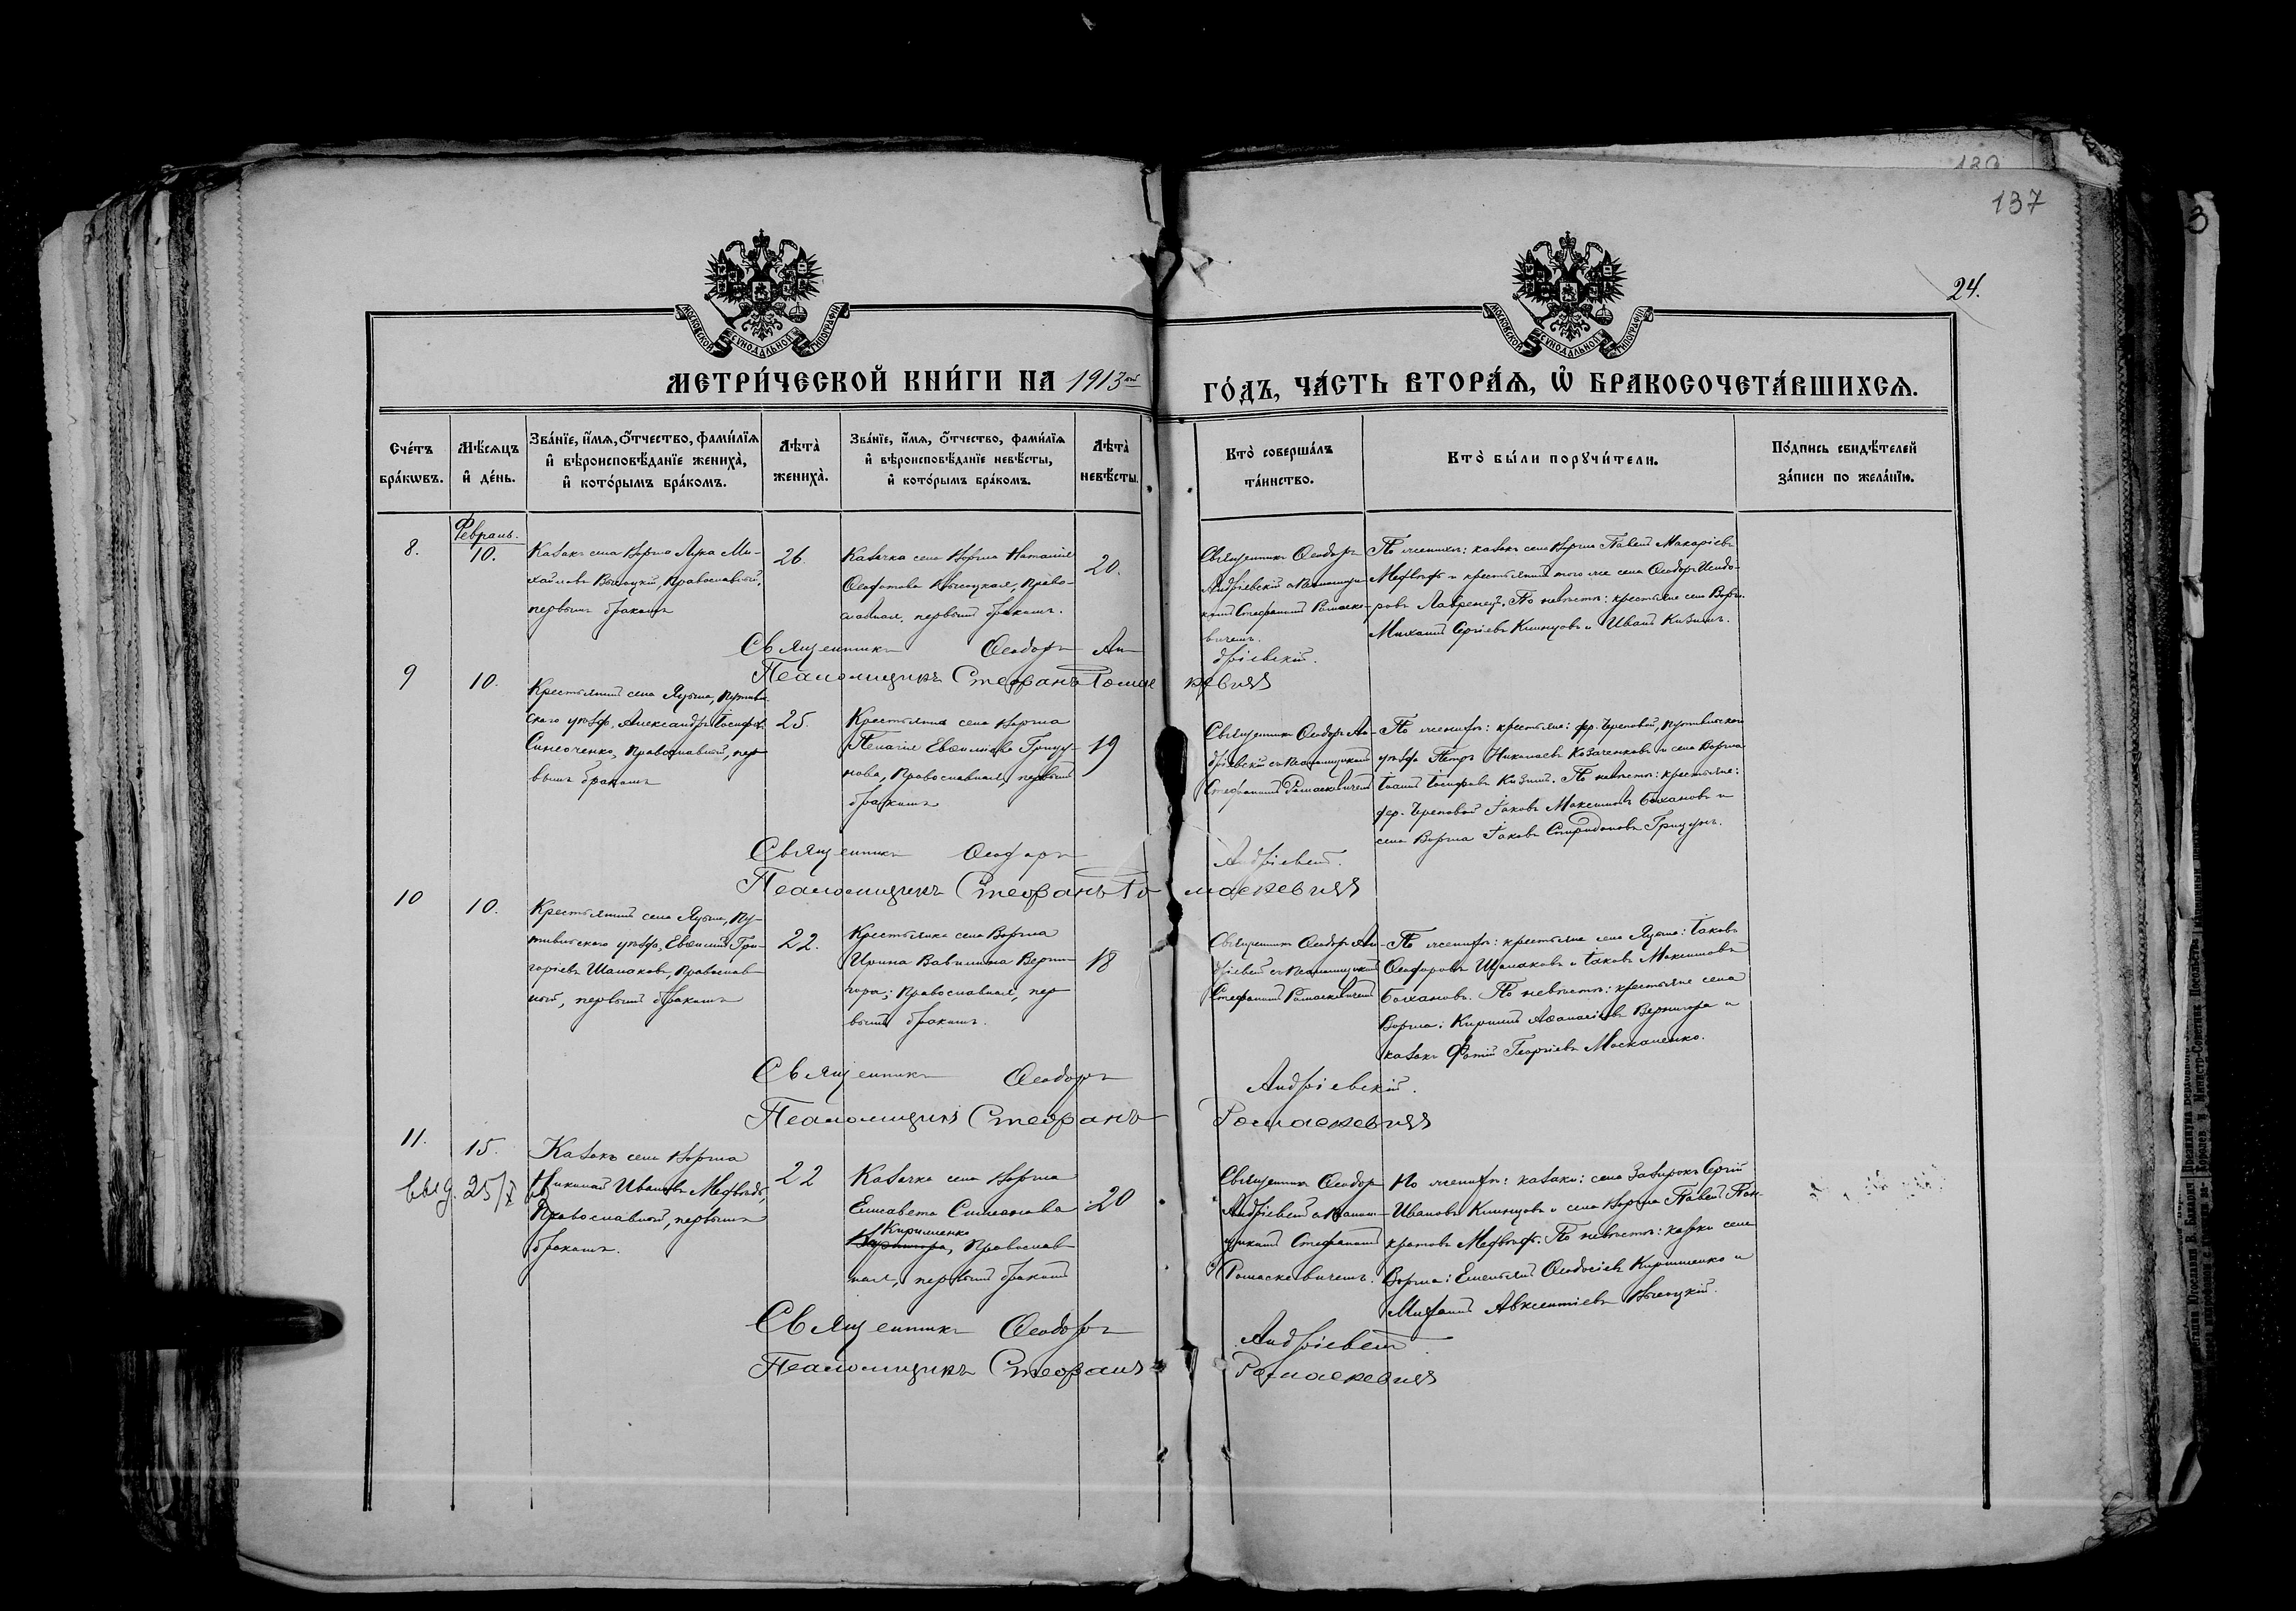 137
24.
МОСКОВСКОЙ СѴНОДАЛЬНОЙ ТИПОГРАФІИ
МОСКОВСКОЙ СѴНОДАЛЬНОЙ ТИПОГРАФІИ
МЕТРИ́ЧЕСКОЙ КНИ́ГИ НА 1913 ый
ГО́ДЪ, ЧА́СТЬ ВТОРА́Ѧ, Ѡ҆ БРАКОСОЧЕТА́ВШИХСѦ.
Сче́тъ бра́кѡвъ.
Мѣ́сѧцъ и҆ де́нь.
Зва́нїе, и҆́мѧ, ѻ҆́тчество, фами́лїѧ
и҆ вѣроисповѣ́данїе жениха̀,
и҆ кото́рымъ бра́комъ.
Лѣта̀ жениха̀.
Зва́нїе, и҆́мѧ, ѻ҆́тчество, фами́лїѧ
и҆ вѣроисповѣ́данїе невѣ́сты,
и҆ кото́рымъ бра́комъ.
Лѣта̀ невѣ́сты.
Кто̀ соверша́лъ та́инство.
Кто̀ бы́ли порꙋчи́тели.
По́дпись свидѣ́телей за́писи по жела́нїю.
8.
Февраль.
10.
Казакъ села Воргла Лука Ми-
хаиловъ Высоцкій, Православный,
первымъ бракомъ
26.
Казачка села Воргла Наталія
Ѳеофатова Высоцкая, Право-
славная, первымъ бракомъ.
20.
Священникъ Ѳеодоръ
Андріевскій съ Псаломщи-
комъ Стефаномъ Ромаске-
вичемъ.
По женихѣ: казакъ села Воргла Павелъ Макаріевъ
Медвѣдь и крестьянинъ того же села Ѳеодоръ Исидо-
ровъ Лавренецъ. По невѣстѣ: крестьяне села Воргла
Михаилъ Сергіевъ Клинцовъ и Иванъ Кизимъ.
Священникъ Ѳеодоръ Андріевскій.
Псаломщикъ Стефанъ Ромаскевичъ
9
10.
Крестьянинъ села Яцына, Путивль-
скаго уѣзда, Александръ Іосифовъ
Симоченко, Православный, пер-
вымъ бракомъ
25.
Крестьянка села Воргла
Пелагія Евѳиміева Грицу-
нова, Православная, первымъ
бракомъ
19
Священникъ Ѳеодоръ Ан-
дріевскій съ Псаломщикомъ
Стефаномъ Ромаскевичемъ
По женихѣ: крестьяне: дер. Череповой, Путивльскаго
уѣзда Петръ Николаевъ Козаченковъ и села Воргла
Іоаннъ Іосифовъ Кизимъ. По невѣстѣ: крестьяне:
дер. Череповой Іаковъ Максимовъ Бахановъ и
села Воргла Іаковъ Спиридоновъ Грицунъ.
Священникъ Ѳеодоръ Андріевскій.
Псаломщикъ Стефанъ Ромаскевичъ
10
10.
Крестьянинъ села Яцына, Пу-
тивльскаго уѣзда, Евѳимій Гри-
горіевъ Шалаковъ, Православ-
ный, первымъ бракомъ
22.
Крестьянка села Воргла
Ирина Вавилина Верни-
гора; Православная, пер-
вымъ бракомъ.
18
Священникъ Ѳеодоръ Ан-
дріевскій съ Псаломщикомъ
Стефаномъ Ромаскевичемъ
По женихѣ: крестьяне села Яцына: Іаковъ
Ѳеодоровъ Шалаковъ и Іаковъ Максимовъ
Баханова. По невѣстѣ: крестьяне села
Воргла: Кириллъ Аѳанасіевъ Вернигора и
казакъ Фотій Георгіевъ Москаленко.
Священникъ Ѳеодоръ Андріевскій.
Псаломщикъ Стефанъ Ромаскевичъ
11.
15.
выд. 25/X
Казакъ села Воргла
Николай Ивановъ Медвѣдь,
Православный, первымъ
бракомъ.
22
Казачка села Воргла
Елисавета Симеонова
Кириленко
Вернигора, Православ-
ная, первымъ бракомъ
20
Священникъ Ѳеодоръ
Андріевскій съ Псалом-
щикомъ Стефаномъ
Ромаскевичемъ.
По женихѣ: казаки: села Зазирокъ Сергій
Ивановъ Клинцовъ и села Воргла Павелъ Пан-
кратовъ Медвѣдь. По невѣстѣ: казаки села
Воргла: Емельянъ Ѳеодосіевъ Кириленко и
Михаилъ Авксентіевъ Высоцкій.
Священникъ Ѳеодоръ Андріевскій.
Псаломщикъ Стефанъ Ромаскевичъ